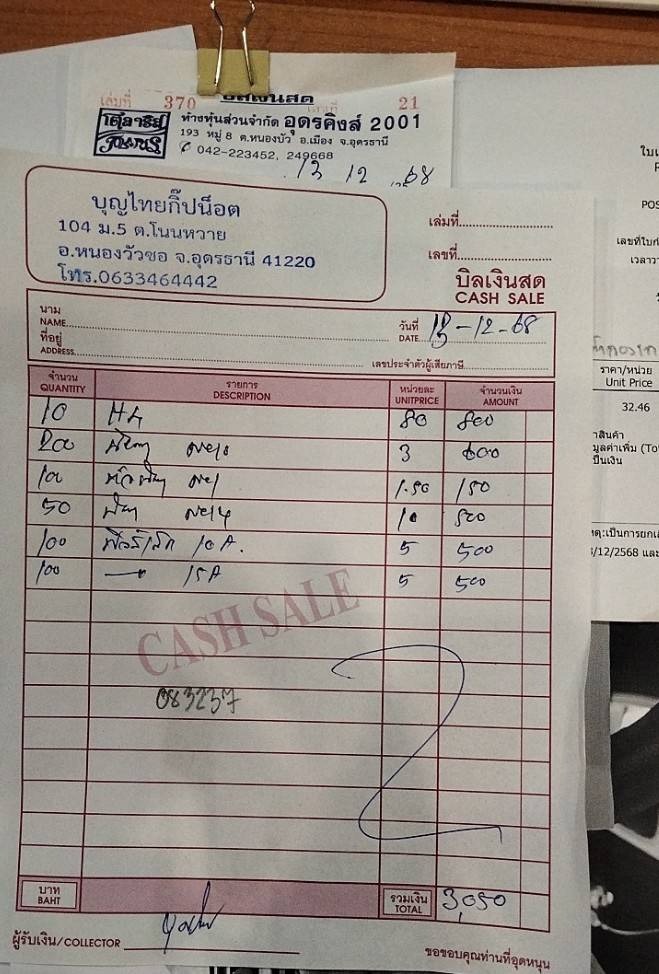 เล่มที่ 370 บิลเงินสด เลขที่ 21
ห้างหุ้นส่วนจำกัด อุดรคิงส์ 2001
193 หมู่ 8 ต.หนองบัว อ.เมือง จ.อุดรธานี
042-223452, 249668
13 12 68
บุญไทยกิ๊ปน็อต
104 ม.5 ต.โนนหวาย
อ.หนองวัวซอ จ.อุดรธานี 41220
โทร.0633464442
เล่มที่
เลขที่
บิลเงินสด
CASH SALE
นาม
NAME
วันที่
DATE -12-68
ที่อยู่
ADDRESS
เลขประจำตัวผู้เสียภาษี
จำนวน รายการ หน่วยละ จำนวนเงิน
QUANTITY DESCRIPTION UNITPRICE AMOUNT
10 H4 80 800
200 3 600
100 1.50 150
50 10 500
100 10 A. 5 500
100 15A 5 500
CASH SALE
083237
บาท
BAHT
รวมเงิน
TOTAL 3,050
ผู้รับเงิน/COLLECTOR
ขอขอบคุณท่านที่อุดหนุน
ราคา/หน่วย
Unit Price
32.46